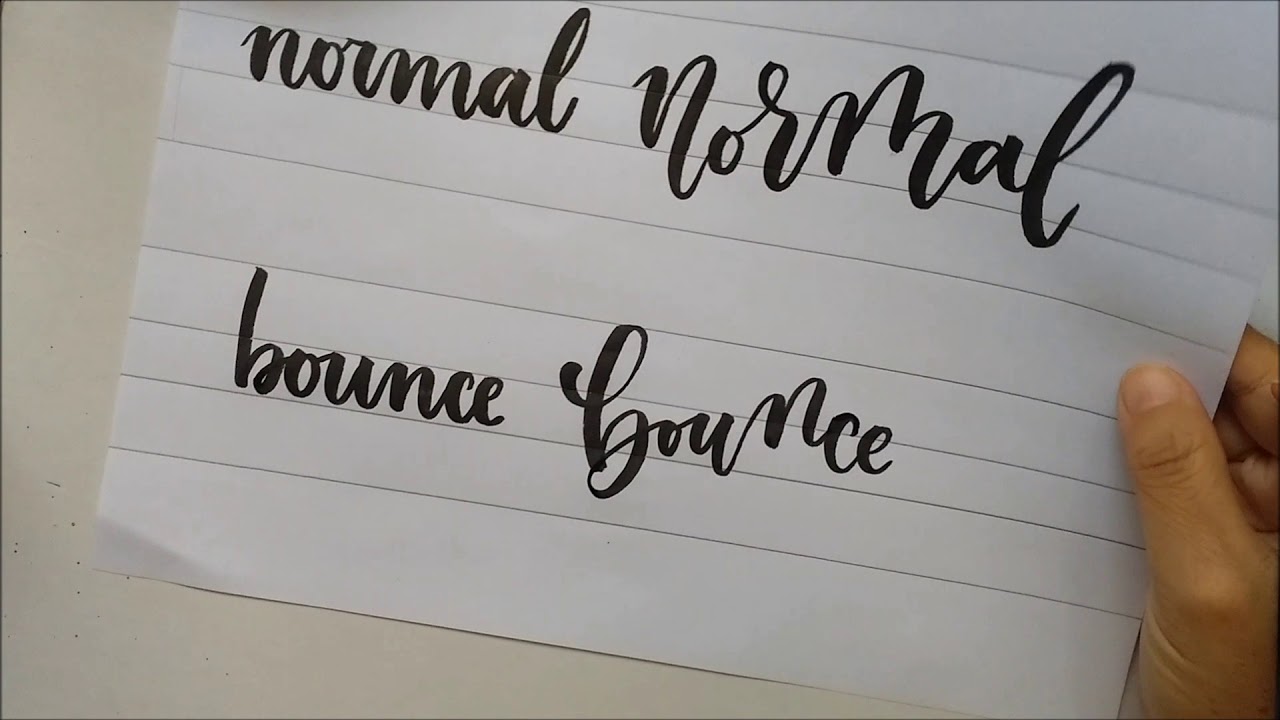 normal normal
bounce bounce